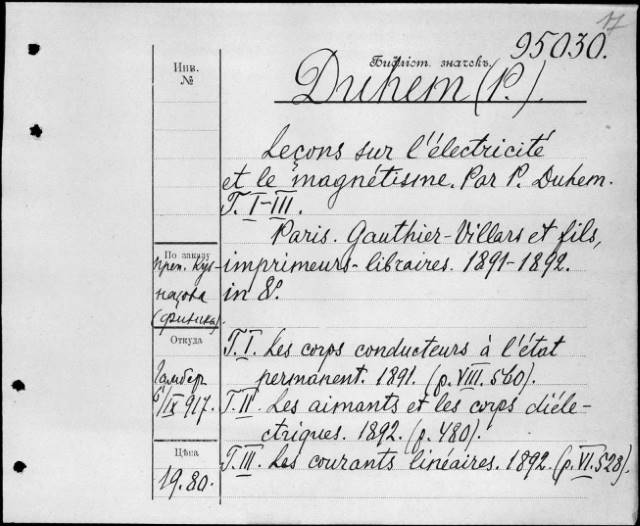 17
95030.
Библіот. значекъ.
Инв.
№
Duhem (P.).
Leçons sur l'électricité
et le magnétisme. Par P. Duhem.
T. I-III.
Paris. Gauthier-Villars et fils,
imprimeurs-libraires. 1891-1892.
in 8º.
По заказу
преп. Куз-
нецова
(физика)
Откуда
Гамбер
6/IX 917.
Цѣна
19.80.
T. I. Les corps conducteurs à l'état
permanent. 1891. (p. VIII. 560).
T. II. Les aimants et les corps diéle-
ctriques. 1892. (p. 480).
T. III. Les courants linéaires. 1892. (p. VI. 528).